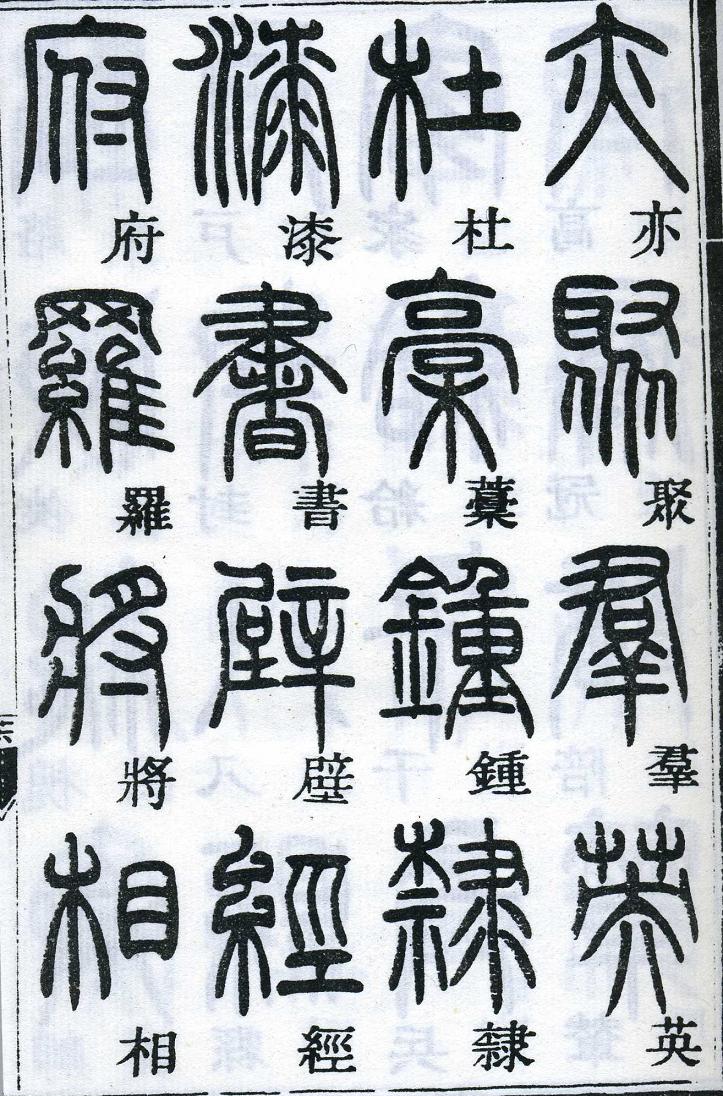 亦聚羣英
杜藁鍾隸
漆書壁經
府羅將相